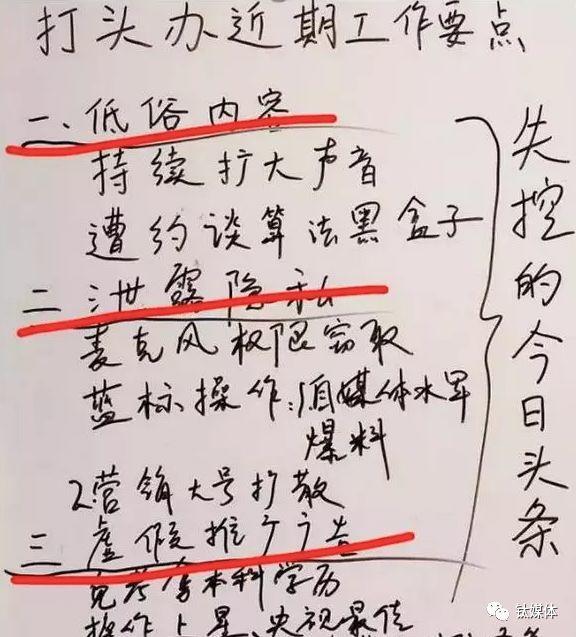 打头办近期工作要点
一、低俗内容
持续扩大声音
遭约谈算法黑盒子
二 泄露隐私
麦克风权限窃取
蓝标操作:1自媒体水军
爆料
2营销大号扩散
三 虚假推广广告
免考拿本科学历
操作上星 央视最佳
失控的今日头条
钛媒体